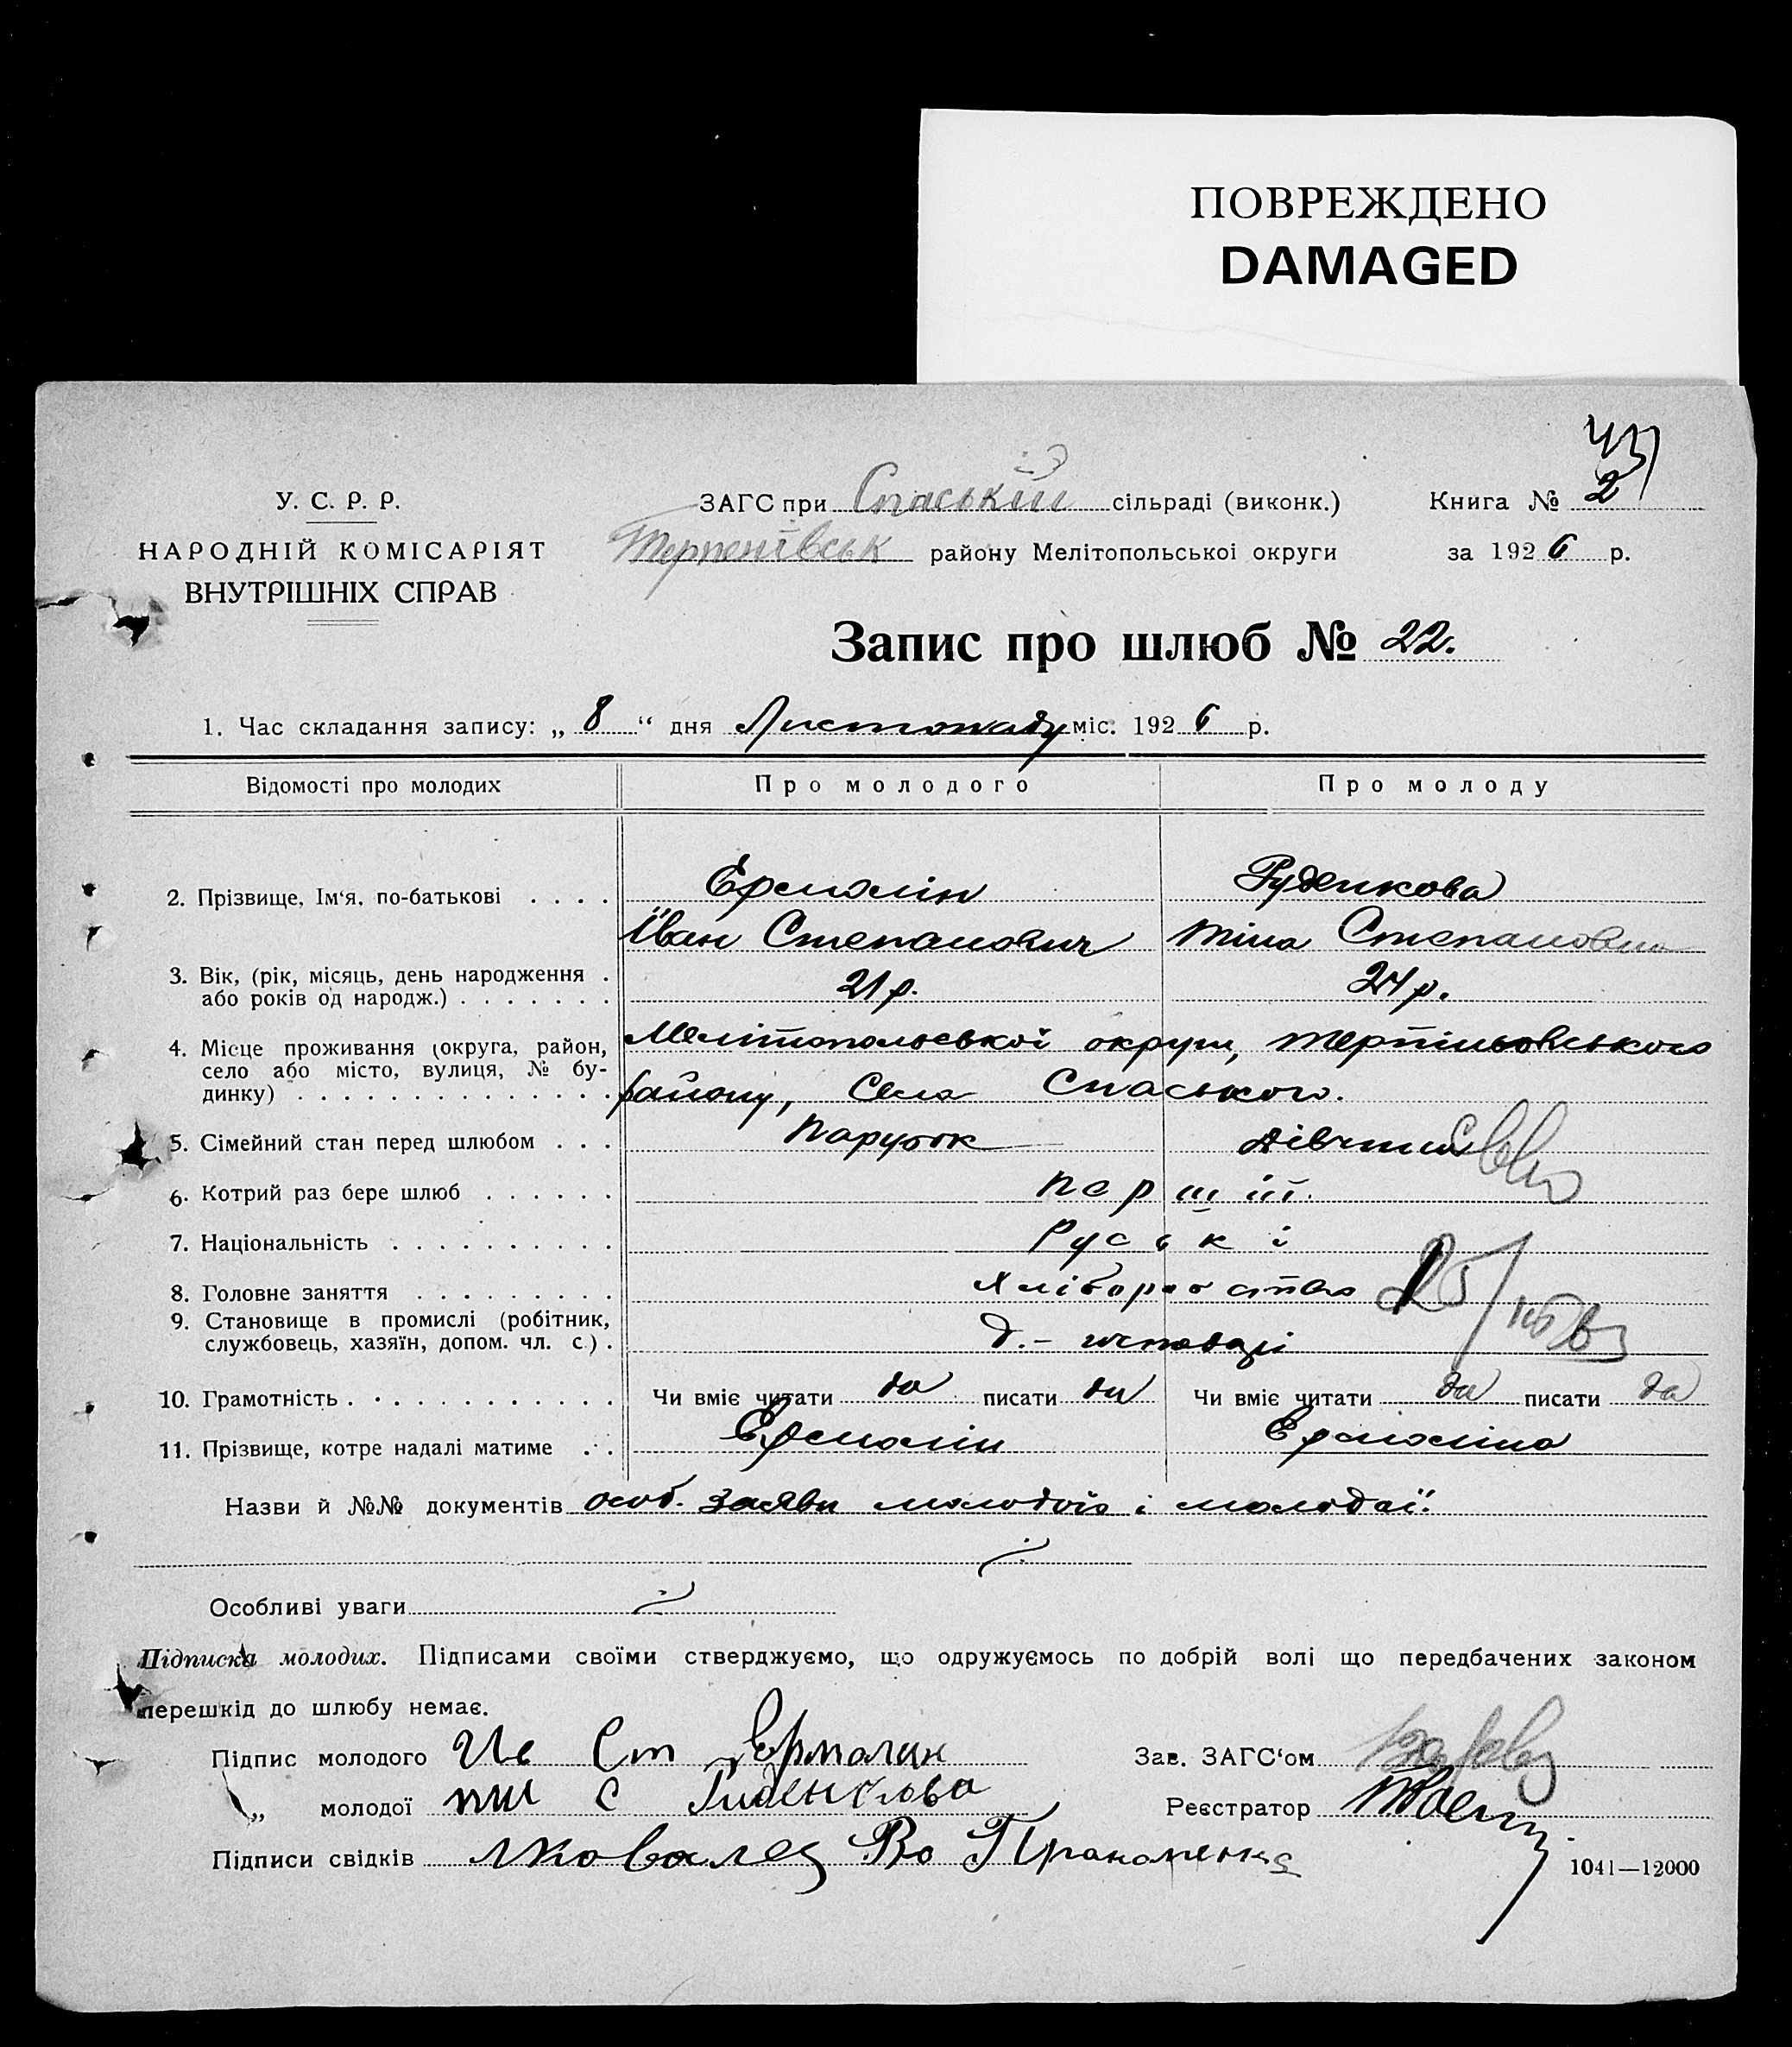 ПОВРЕЖДЕНО
DAMAGED
У. С. Р. Р.
НАРОДНІЙ КОМІСАРІЯТ
ВНУТРІШНІХ СПРАВ
ЗАГС при Спаській сільраді (виконк.) Книга № 2
району Мелітопольської округи за 1926 р.
Запис про шлюб № 22.
1. Час складання запису: „ 8 “ дня Листопаду міс. 1926 р.
Відомості про молодих Про молодого Про молоду
2. Прізвище, Ім‘я, по-батькові . . . . Ермолін Руденкова
Іван Степанович Степановна
3. Вік, (рік, місяць, день народження . 21 р. 24 р.
або років од народж.) . . . . . . .
4. Місце проживання (округа, район, Мелітопольської округи, Терпіньовського
село або місто, вулиця, № бу-
динку) . . . . . . . . . . . . . . району, Села Спаського.
5. Сімейний стан перед шлюбом . . . Парубок Дівчина
6. Котрий раз бере шлюб . . . . . . Перший.
7. Національність . . . . . . . . . . Руські
8. Головне заняття . . . . . . . . . Хліборобство
9. Становище в промислі (робітник,
службовець, хазяїн, допом. чл. с.) . господарі
10. Грамотність . . . . . . . . . . . . Чи вміє читати да писати да Чи вміє читати да писати да
11. Прізвище, котре надалі матиме . . . Ермолін Ермоліна
Назви й №№ документів особ. заяви молодого і молодої.
Особливі уваги
Підписка молодих. Підписами своїми стверджуємо, що одружуємось по добрій волі що передбачених законом
перешкід до шлюбу немає.
Підпис молодого Ив Ст Ермолин Зав. ЗАГС‘ом
„ молодої С Руденкова Реєстратор
Підписи свідків
1041—12000